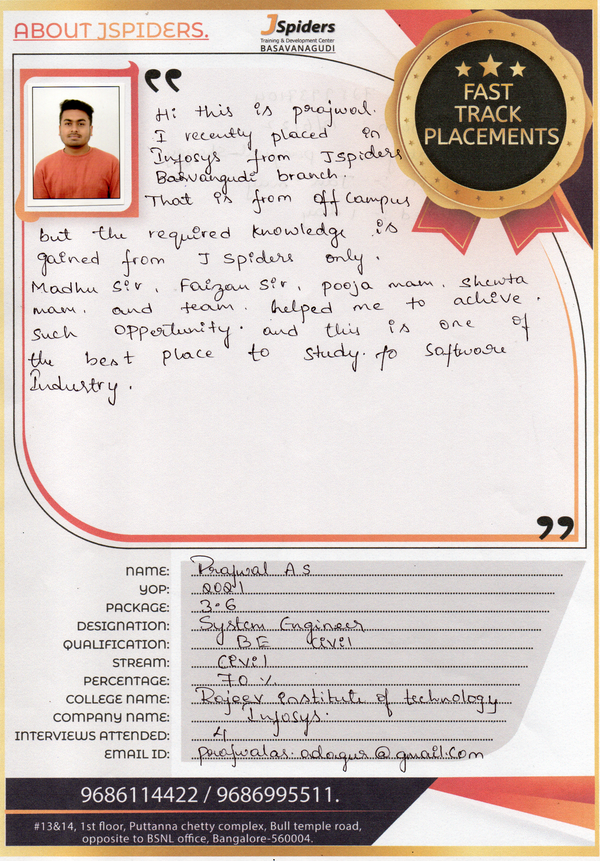 ABOUT JSPIDERS.
JSpiders
Training & Development Center
BASAVANAGUDI
FAST
TRACK
PLACEMENTS
Hi this is prajwal.
I recently placed in
Infosys from JSpiders
Basvangudi branch.
That is from off campus
but the required knowledge is
gained from J Spiders only.
Madhu Sir, Faizan Sir, pooja mam, Shewta
mam, and team. helped me to achive.
such opportunity. and this is one of
the best place to study. fo software
Industry.
NAME: Prajwal A S
YOP: 2021
PACKAGE: 3.6
DESIGNATION: System Engineer
QUALIFICATION: BE civil
STREAM: civil
PERCENTAGE: 70 %
COLLEGE NAME: Rajeev institute of technology
COMPANY NAME: Infosys.
INTERVIEWS ATTENDED: 4
EMAIL ID: prajwalas.adagur@gmail.com
9686114422 / 9686995511.
#13&14, 1st floor, Puttanna chetty complex, Bull temple road,
opposite to BSNL office, Bangalore-560004.